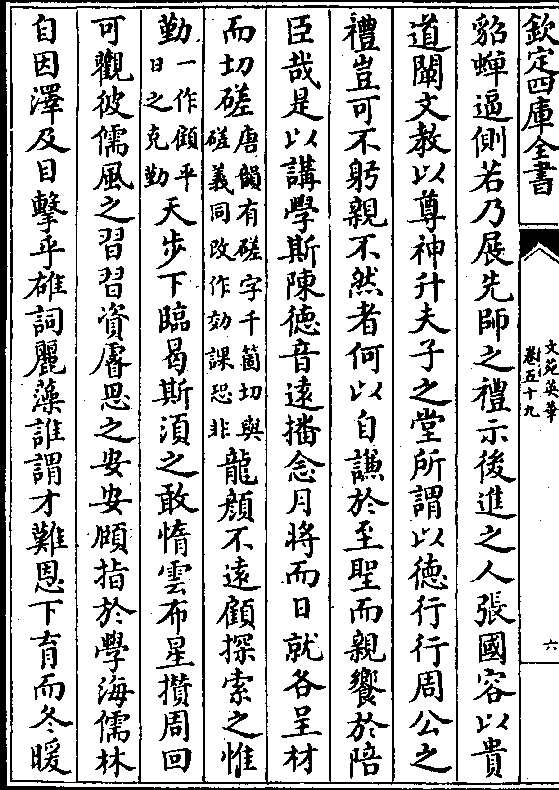 欽定四庫全書
文苑英華
卷五十九
六
貂蟬逼側若乃展先師之禮示後進之人張國容以貴
道闡文教以尊神升夫子之堂所謂以德行行周公之
禮豈可不躬親不然者何以自謙於至聖而親饗於陪
臣哉是以講學斯陳德音遠播念月將而日就各呈材
而切磋唐韻有磋字千箇切與磋義同改作効課恐非龍顔不遠顧探索之惟
勤一作顧平日之克勤天步下臨曷斯湏之敢惰雲布星攢周回
可觀彼儒風之習習資睿思之安安頋指於學海儒林
自因澤及目擊乎雄詞麗藻誰謂才難恩下育而冬暖